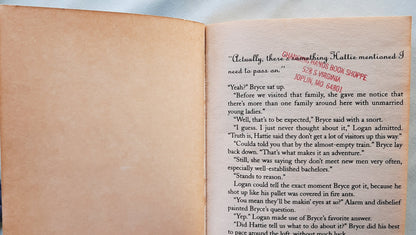 "Actually, there's something Hattie mentioned I
need to pass on."
CHANGING HANDS BOOK SHOPPE
528 S VIRGINIA
JOPLIN, MO 64801
"Yeah?" Bryce sat up.
"Before we visited that family, she gave me notice that
there's more than one family around here with unmarried
young ladies."
"Well, that's to be expected," Bryce said with a snort.
"I guess. I just never thought about it," Logan admitted.
"Truth is, Hattie said they don't get a lot of visitors up this way."
"Coulda told you that by the almost-empty train." Bryce lay
back down. "That's what makes it an adventure."
"Still, she was saying they don't meet new men very often,
especially well-established bachelors."
"Stands to reason."
Logan could tell the exact moment Bryce got it, because he
shot up like his pallet was covered in fire ants.
"You mean they'll be makin' eyes at us?" Alarm and disbelief
painted Bryce's question.
"Yep." Logan made use of Bryce's favorite answer.
"Did Hattie tell us what to do about it?" Bryce did his best
to pace around the loft without much back